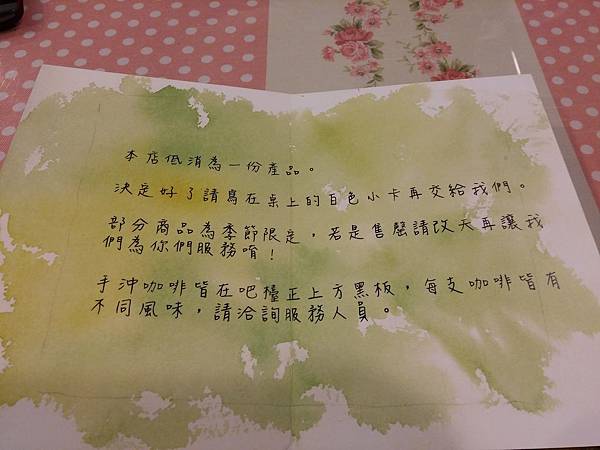 本店低消為一份產品。
決定好了請寫在桌上的白色小卡再交給我們。
部分商品為季節限定，若是售罄請改天再讓我
們為你們服務唷！
手沖咖啡皆在吧檯正上方黑板，每支咖啡皆有
不同風味，請洽詢服務人員。